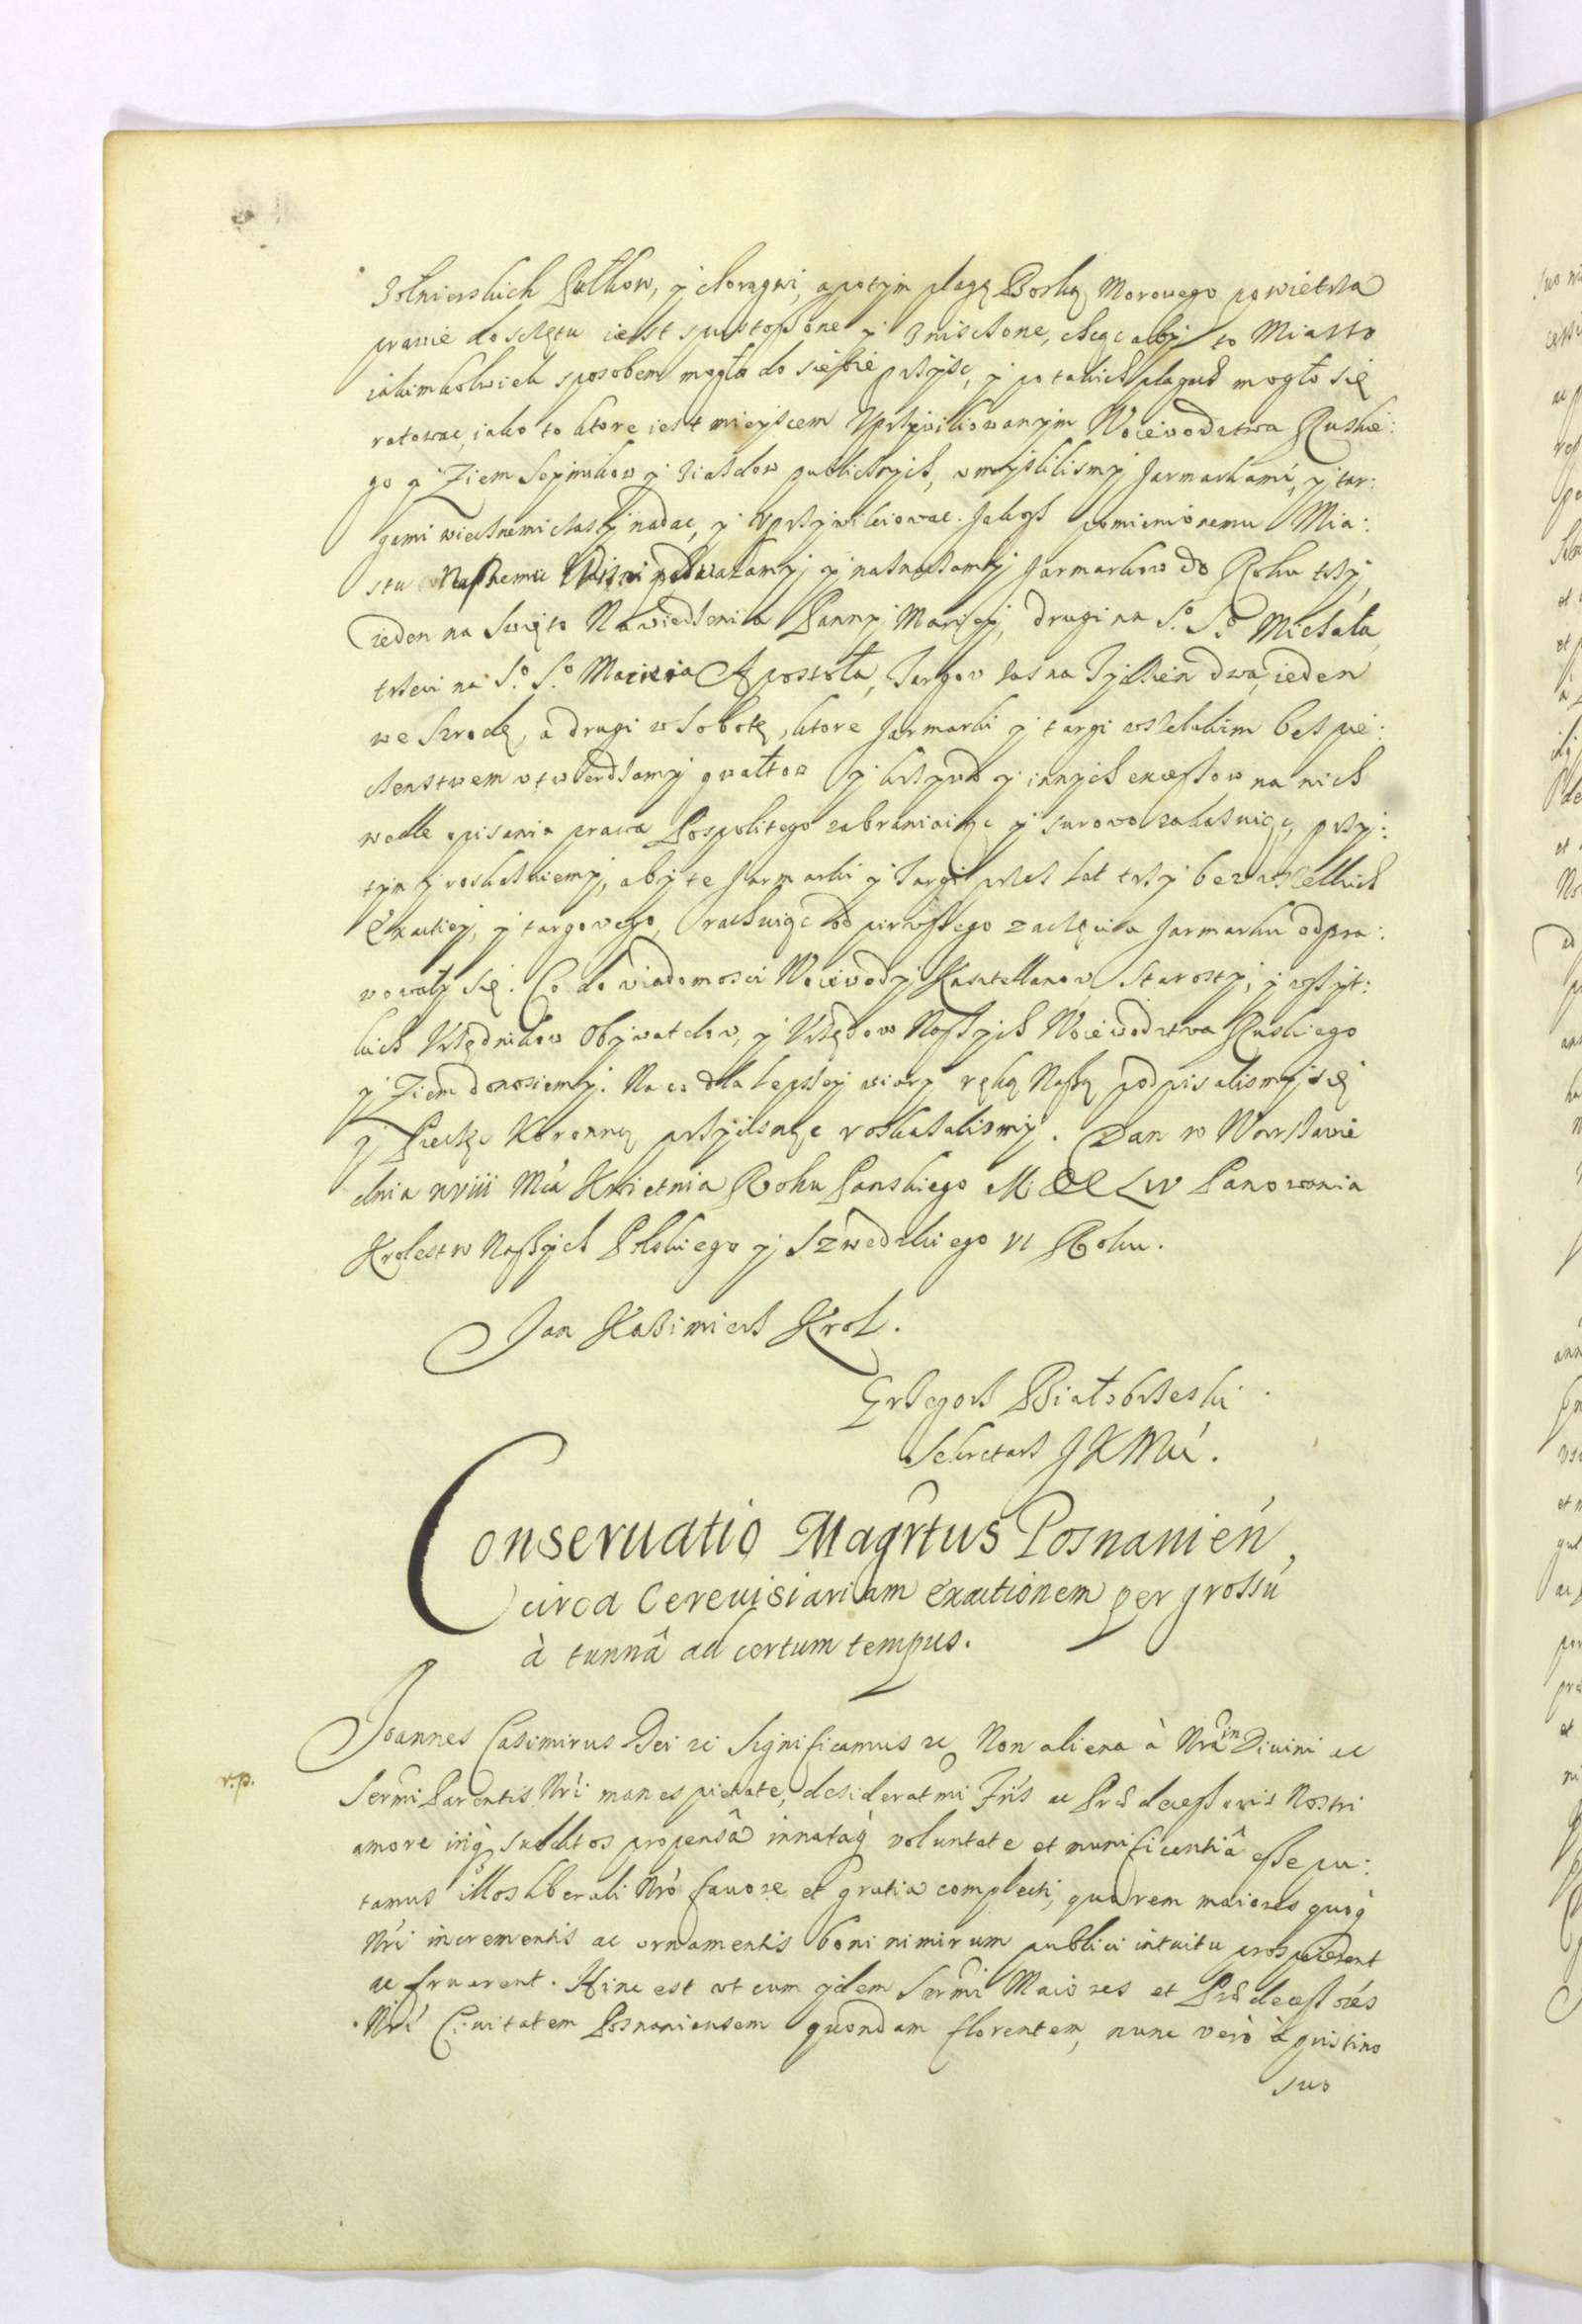 Zołnierskich Pułkow, y chorągwi, a potym plagę Boską Morowego powietrza
prawie do sczętu iest spustoszone y zniszczone, chcąc aby to Miasto
iakimkolwiek sposobem mogło do siebie przyść, y po takich plagach mogło się
ratować, iako to ktore iest mieyscem Vprzywiliowanym Woiewodztwa Ruskie:
go y Ziem Seymikow y Ziazdow publicznych, vmyśliliśmy Jarmarkami, y tar:
gami wiecznemi czasy nadać, y Vprzywileiować. Jakoż pomienionemu Mia:
stu Naszemu y naznaczamy Jarmarkow do Roku trzy,
ieden na Swięto Nawiedzenia Panny Maryey, drugi na S.o S.o Michała,
trzeci na S.o S.o Macieia Apostoła, Targow zas na Tydzień dwa, ieden
we Srzodę, a drugi w Sobotę, ktore Jarmarki y targi wszelakim beśpie:
czenstwem vtwierdzamy gwałtow y krzywd y innych excessow na nich
wedle opisania prawa Pospolitego zabraniaiąc y surowo zakazuiąc, przy:
tym y roskazuiemy, aby te Jarmarki y Targi przez lat trzy bez wszelkich
Exactiey, y targowego, rachuiąc od pierwszego zaczęcia Jarmarku odpra:
wowały się. Co do wiadomości Woiewody, Kasztellanow Starosty, y wszyt:
kich Vrzędnikow Obywatelow, y Vrzędow Naszych Woiewodztwa Ruskiego
y Ziem donosiemy. Na co dla lepszey wiary ręką Naszą podpisalismy się
y Pieczęć Koronną przycisnąć roskazalismy. Dan w Warszawie
dnia xviii Mca Kwietnia Roku Panskiego M DC LIV Panowania
Krolestw Naszych Polskiego y Szwedzkiego VI Roku.
Jan Kazimierz Krol.
Grzegorz Białobrzeski
Sekretarz J K Mći.
Conseruatio Magrtus Posnanień,
circa Cereuisiariam exactionem per grossú
à tunnâ ad certum tempus.
Joannes Casimirus Dei &c Significamus &c Non aliena à Nrâ in Diuini ac
r.p.
Sermi Parentis Nri manes pietate, desideratmi Frís ac Prædecessoris Nostri
amore inq; subditos propensâ innatáq; voluntate et munificentiâ esse pu:
tamus illos liberali Nrò fauore et gratia complecti, quà rem maiores quoq;
Nri incrementis ac ornamentis boni nimirum publici intuitu prospicerent
ac fruerent. Hinc est vt cum ijdem Sermi Maiores et Prædecessórés
Nri Ciuitatem Posnaniensem quondam florentem, nunc verò à pristino
suo